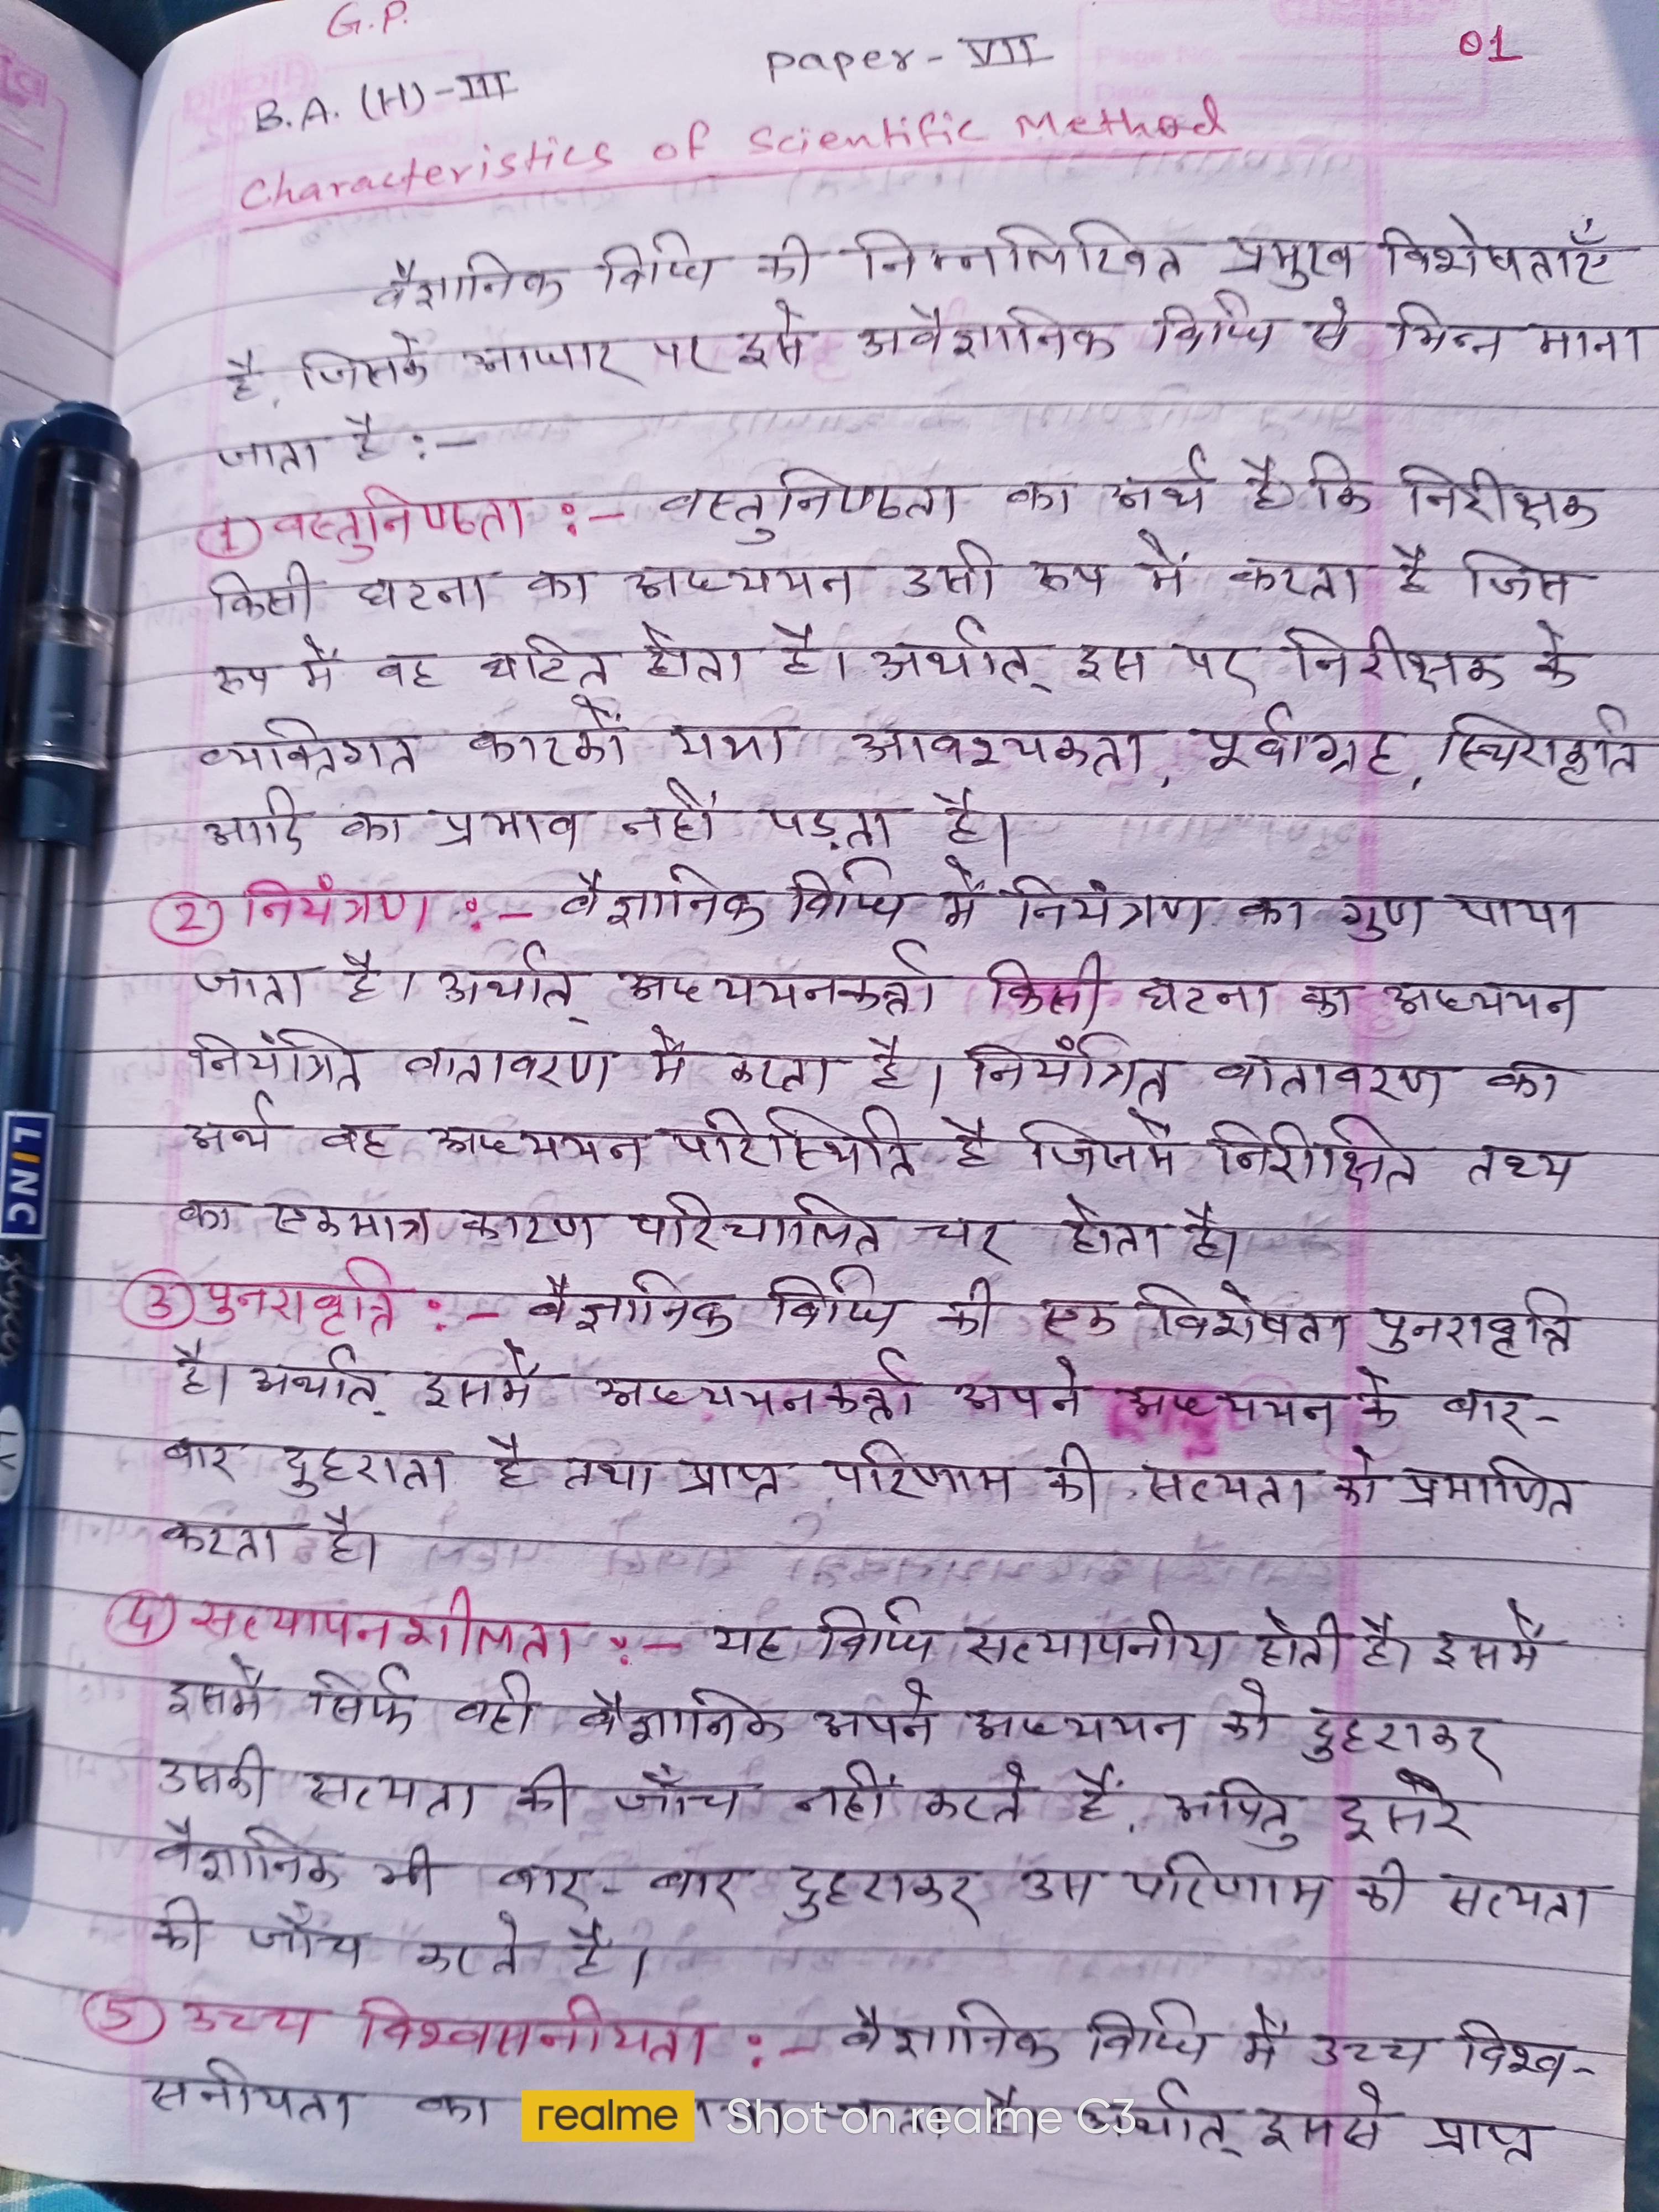 G.P.
B.A. (H)-III
paper-VII
01
Characteristics of Scientific Method
वैज्ञानिक विधि की निम्नलिखित प्रमुख विशेषताएँ
है, जिसके आधार पर इसे अवैज्ञानिक विधि से भिन्न माना
जाता है:-
① वस्तुनिष्ठता :- वस्तुनिष्ठता का अर्थ है कि निरीक्षक
किसी घटना का अध्ययन उसी रूप में करता है जिस
रूप में वह घटित होता है। अर्थात् इस पर निरीक्षक के
व्यक्तिगत कारकों यथा आवश्यकता, पूर्वाग्रह, स्थिराकृति
आदि का प्रभाव नहीं पड़ता है।
② नियंत्रण :- वैज्ञानिक विधि में नियंत्रण का गुण पाया
जाता है। अर्थात् अध्ययनकर्त्ता किसी घटना का अध्ययन
नियंत्रित वातावरण में करता है। नियंत्रित वातावरण का
अर्थ वह अध्ययन परिस्थिति है जिसमें निरीक्षित तथ्य
का एकमात्र कारण परिचालित चर होता है।
③ पुनरावृत्ति :- वैज्ञानिक विधि की एक विशेषता पुनरावृत्ति
है। अर्थात् इसमें अध्ययनकर्त्ता अपने अध्ययन के बार-
बार दुहराता है तथा प्राप्त परिणाम की सत्यता को प्रमाणित
करता है।
④ सत्यापनशीलता :- यह विधि सत्यापनीय होती है। इसमें
इसमें सिर्फ वही वैज्ञानिक अपने अध्ययन को दुहराकर
उसकी सत्यता की जाँच नहीं करते हैं, अपितु दूसरे
वैज्ञानिक भी बार-बार दुहराकर उस परिणाम की सत्यता
की जाँच करते हैं।
⑤ उच्च विश्वसनीयता :- वैज्ञानिक विधि में उच्च विश्व-
सनीयता का है। अर्थात् इससे प्राप्त
LINC
realme Shot on realme C3